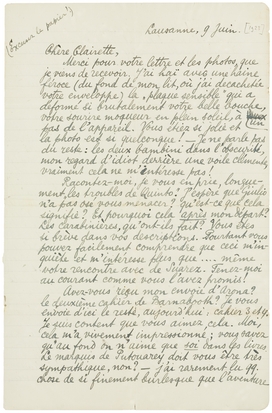 (Excusez le papier!)
Lausanne, 9 Juin.
Chère Clairette,
Merci pour votre lettre et les photos, que
je viens de recevoir. J'ai haï avec une haine
féroce (du fond de mon lit, où j'ai décacheté
votre enveloppe) la "plaque sensible" qui a
déformé si brutalement votre belle bouche,
votre sourire moqueur en plein soleil, à deux
pas de l'appareil. Vous étiez si jolie et
la photo est si quelconque. — Je ne parle pas
du reste: les deux bambini dans l'obscurité,
mon regard d'idiot derrière une voile
vraiment cela ne m'intéresse pas!
Racontez-moi, je vous en prie, longue-
ment les troubles de Quinto? J'espère que
n'a pas osé vous menacer? Qu'est-ce que cela
signifie? Et pourquoi cela après mon départ?
Les carabinières, qu'ont-ils fait? Vous êtes
si brève dans vos descriptions. Pourtant vous
pouvez facilement comprendre que ceci m'in-
quiète et m'intéresse plus que .... même
votre rencontre avec de Suarez. Tenez-moi
au courant comme nous l'avez promis!
Avez-vous reçu mon envoi d'Arona?
le deuxième cahier de Barnabooth? Je vous
envoie d'ici le reste, aujourd'hui, cahier 3 et 4.
Je suis content que vous aimez cela. Moi,
cela m'a vivement impressionné; vous savez
qu'au fond on n'aime que soi dans les livres.
Le marquis de Putouarey doit vous être très
sympathique, non? — j'ai rarement lu qq.
chose de si finement burlesque que l'aventure